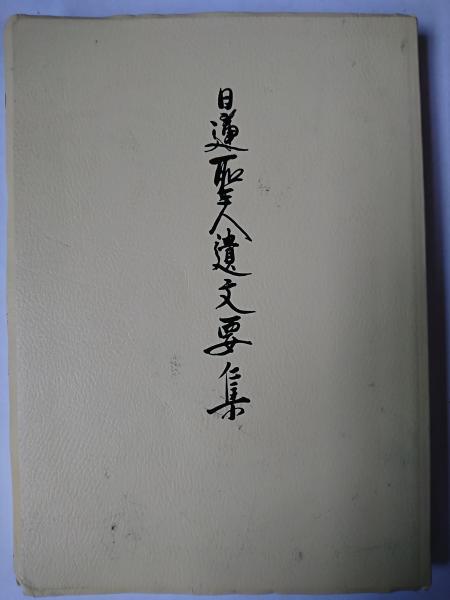 日蓮聖人遺文要集